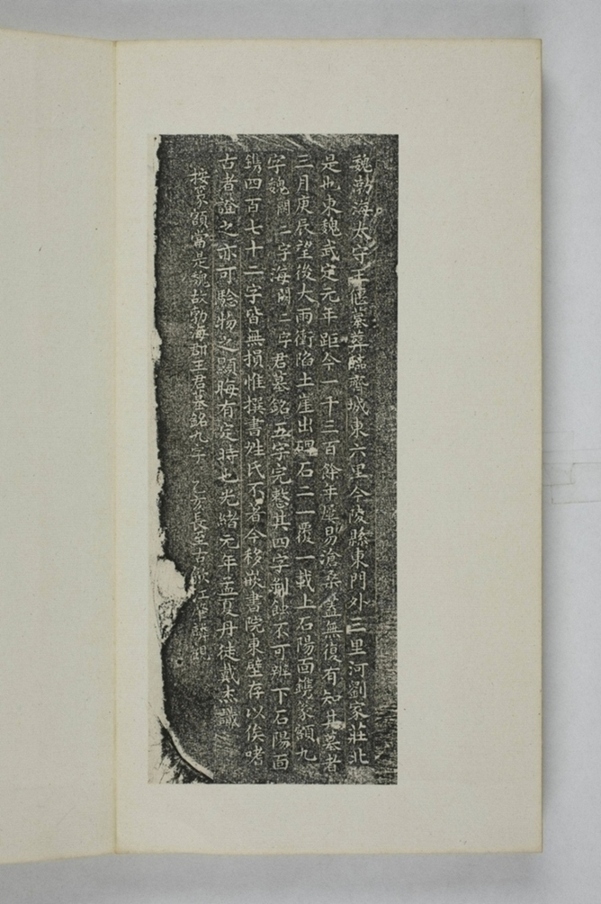 魏勃海太守王偃墓葬臨齊城東六里今陵縣東門外三里河劉家莊北
是也東魏武定元年距今一千三百餘年陵易滄桑蓋無復有知其墓者
三月庚辰望後大雨衝陷土崖出碑石二一覆一載上石陽面鐫篆額九
字魏闕二字海闕二字君墓銘五字完整其四字剝蝕不可辨下石陽面
鐫四百七十二字皆無損惟撰書姓氏不著今移嵌書院東壁存以俟嗜
古者證之亦可驗物之顯晦有定時也光緒元年孟夏丹徒戴杰識
按篆額當是魏故勃海太守王君墓銘九字 乙亥長至古歙江